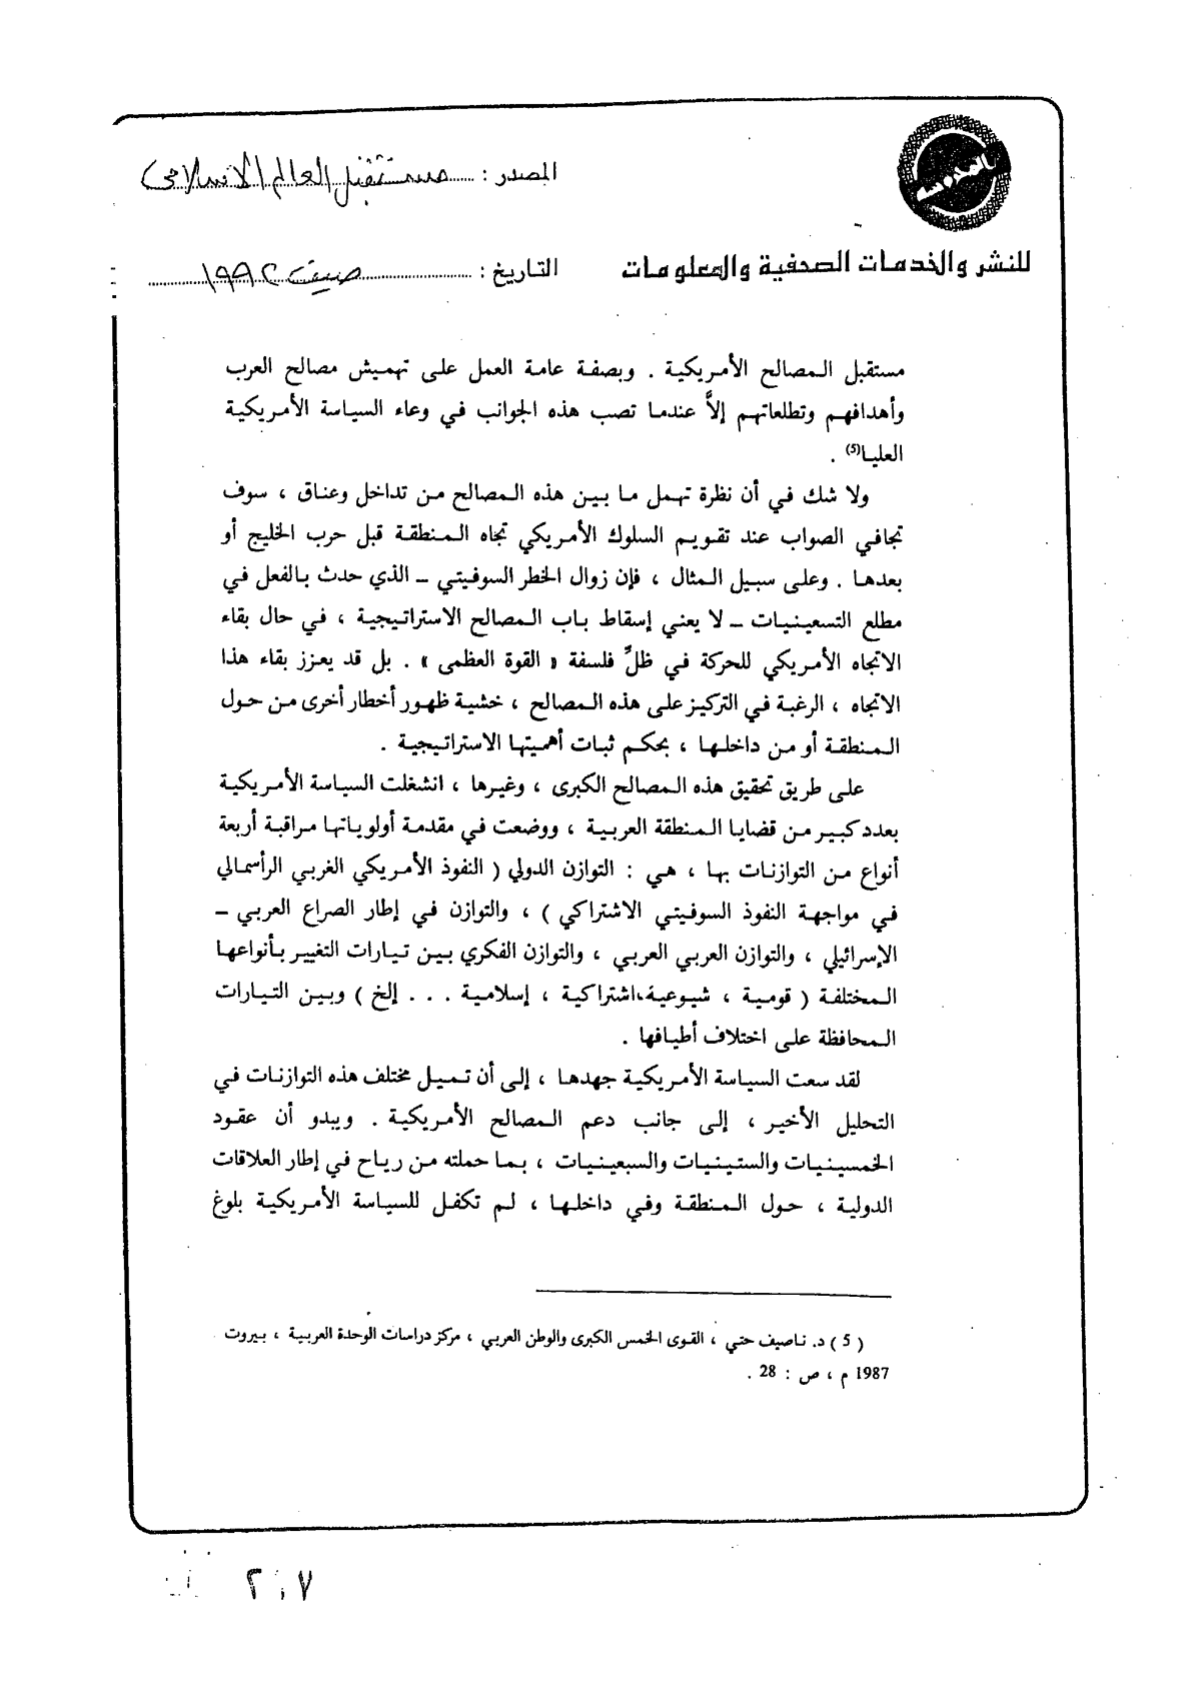 المصدر : مستقبل العالم الاسلامى
للنشر والخدمات الصحفية والمعلومات
التاريخ : صيف ١٩٩٢
مستقبل المصالح الأمريكية . وبصفة عامة العمل على تهميش مصالح العرب
وأهدافهم وتطلعاتهم إلاَّ عندما تصب هذه الجوانب في وعاء السياسة الأمريكية
العليا(5) .
ولا شك في أن نظرة تهمل ما بين هذه المصالح من تداخل وعناق ، سوف
تجافي الصواب عند تقويم السلوك الأمريكي تجاه المنطقة قبل حرب الخليج أو
بعدها . وعلى سبيل المثال ، فإن زوال الخطر السوفيتي – الذي حدث بالفعل في
مطلع التسعينيات – لا يعني إسقاط باب المصالح الاستراتيجية ، في حال بقاء
الاتجاه الأمريكي للحركة في ظلِّ فلسفة « القوة العظمى » . بل قد يعزز بقاء هذا
الاتجاه ، الرغبة في التركيز على هذه المصالح ، خشية ظهور أخطار أخرى من حول
المنطقة أو من داخلها ، بحكم ثبات أهميتها الاستراتيجية .
على طريق تحقيق هذه المصالح الكبرى ، وغيرها ، انشغلت السياسة الأمريكية
بعدد كبير من قضايا المنطقة العربية ، ووضعت في مقدمة أولوياتها مراقبة أربعة
أنواع من التوازنات بها ، هي : التوازن الدولي ( النفوذ الأمريكي الغربي الرأسمالي
في مواجهة النفوذ السوفيتي الاشتراكي ) ، والتوازن في إطار الصراع العربي –
الإسرائيلي ، والتوازن العربي العربي ، والتوازن الفكري بين تيارات التغيير بأنواعها
المختلفة ( قومية ، شيوعية،اشتراكية ، إسلامية . . . إلخ ) وبين التيارات
المحافظة على اختلاف أطيافها .
لقد سعت السياسة الأمريكية جهدها ، إلى أن تميل مختلف هذه التوازنات في
التحليل الأخير ، إلى جانب دعم المصالح الأمريكية . ويبدو أن عقود
الخمسينيات والستينيات والسبعينيات ، بما حملته من رياح في إطار العلاقات
الدولية ، حول المنطقة وفي داخلها ، لم تكفل للسياسة الأمريكية بلوغ
( 5 ) د. ناصيف حتي ، القوى الخمس الكبرى والوطن العربي ، مركز دراسات الوحدة العربية ، بيروت
1987 م ، ص : 28 .